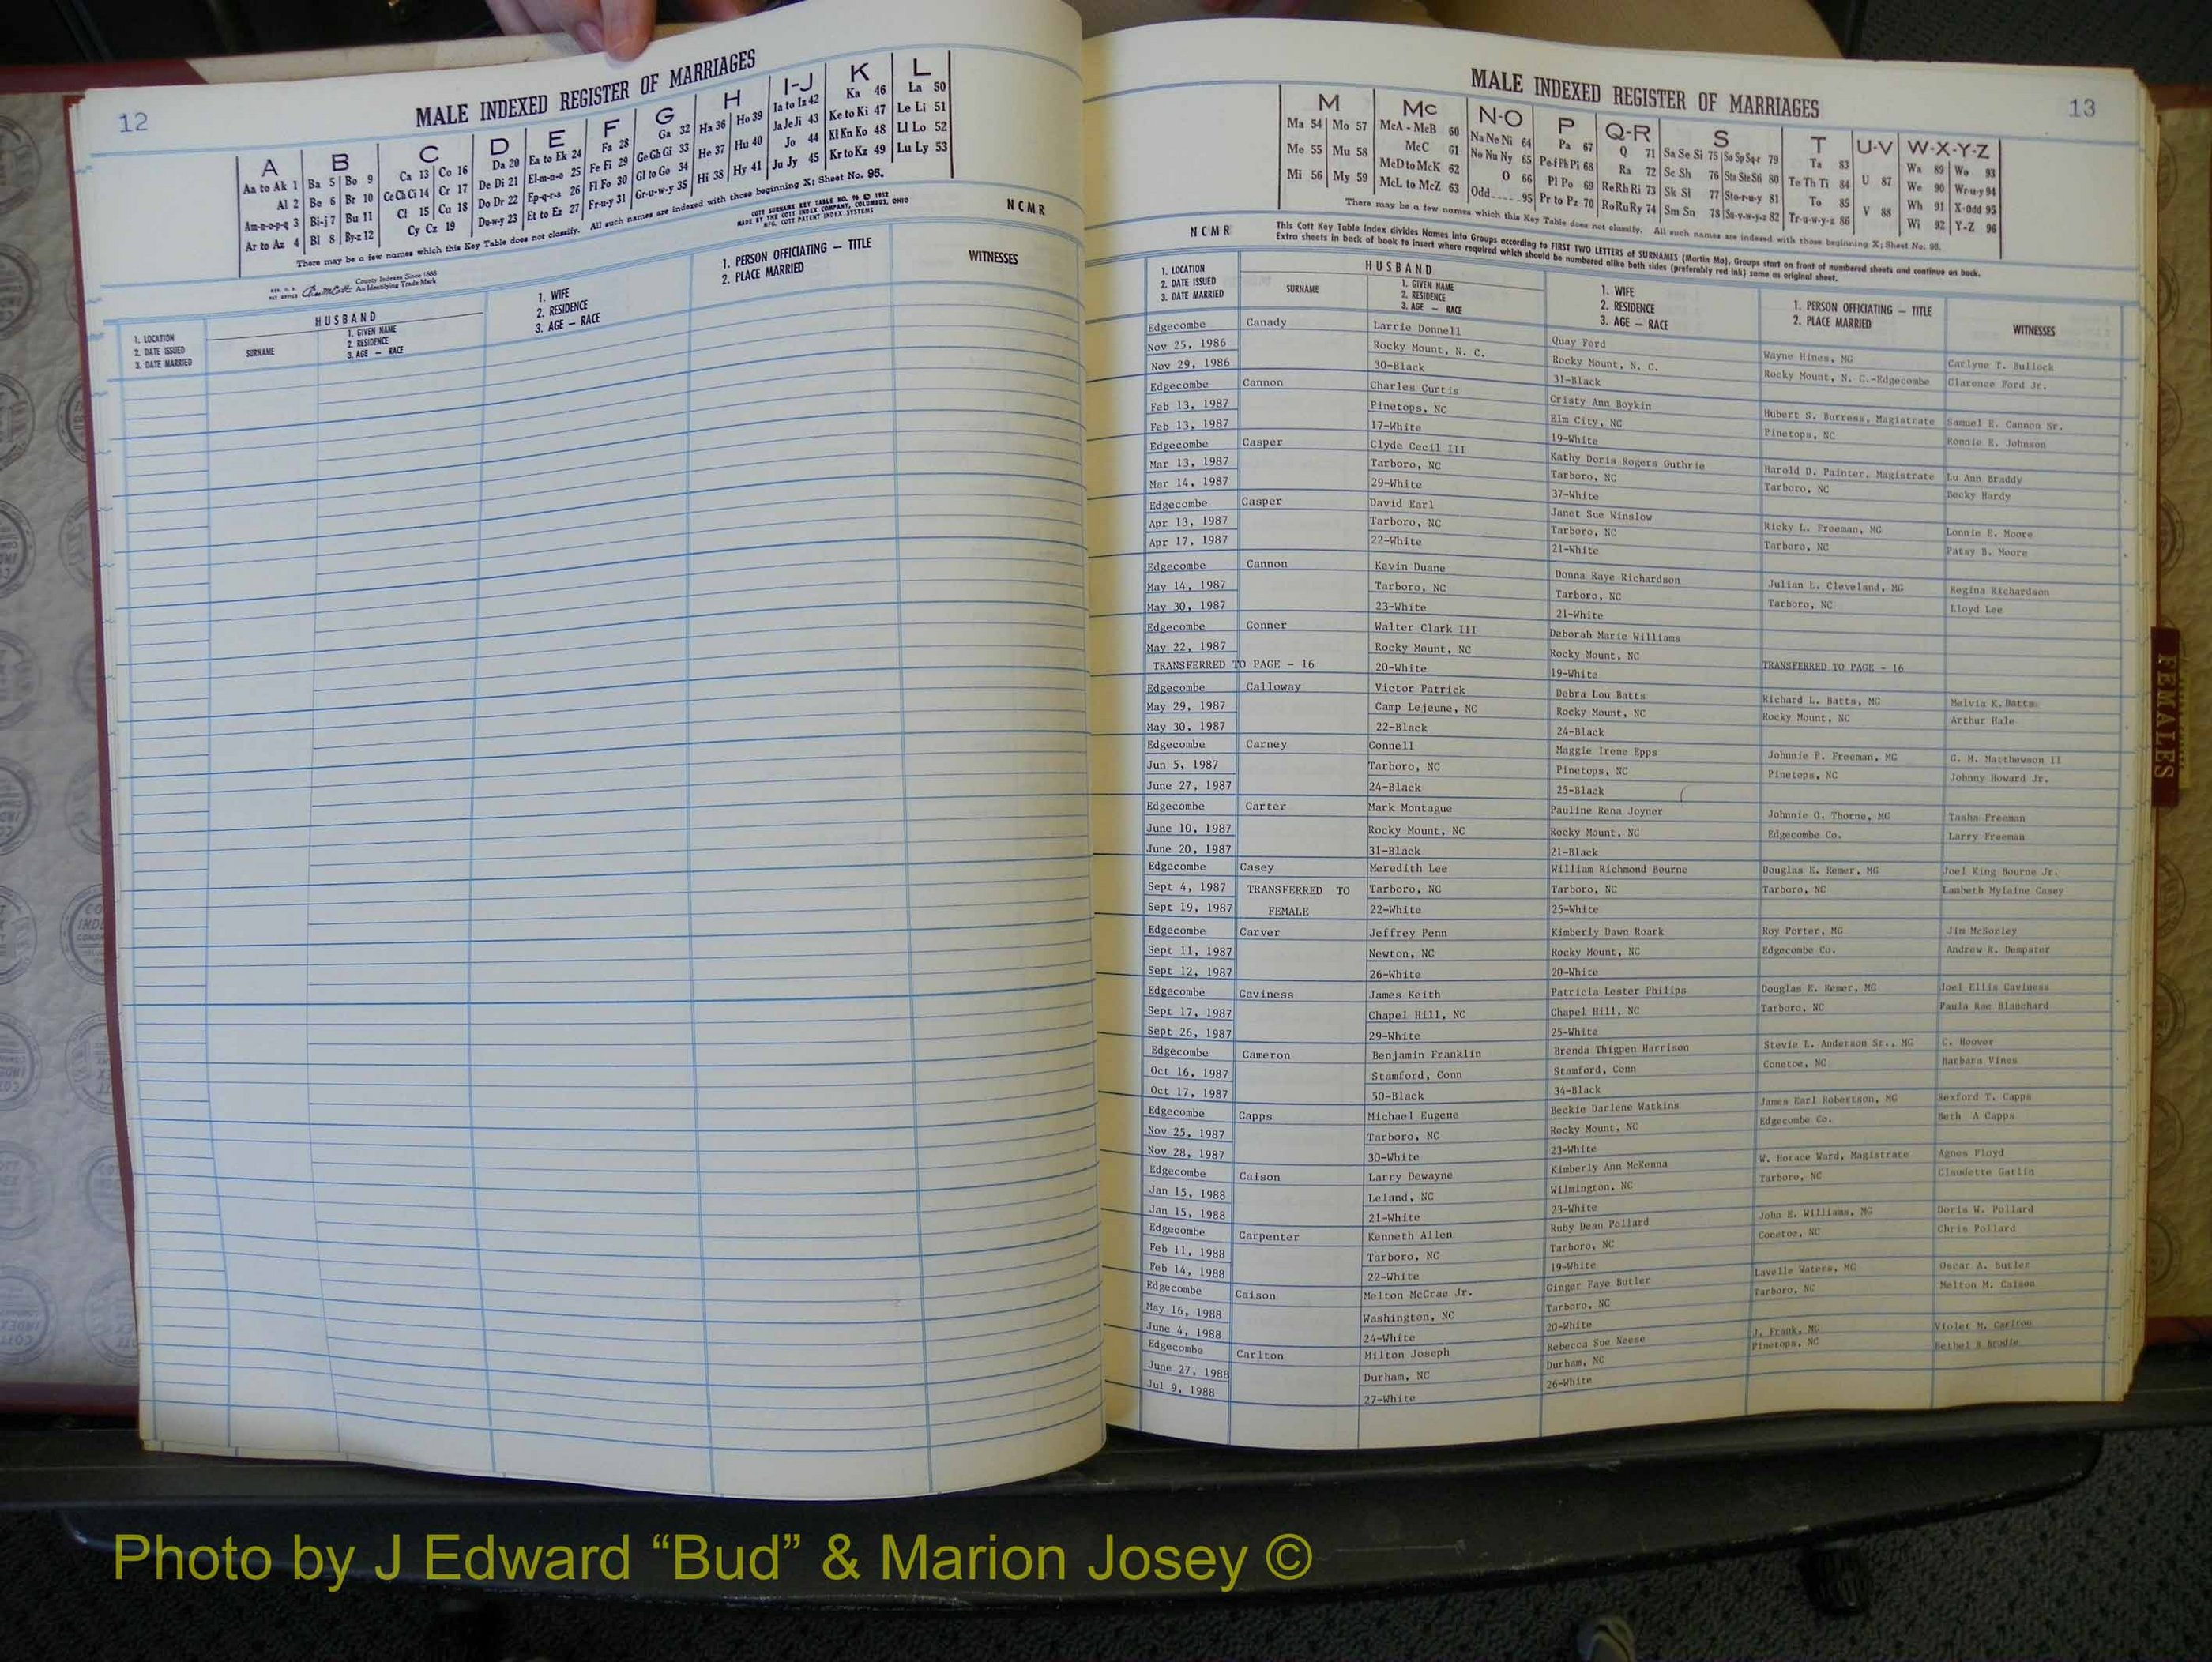 12
MALE INDEXED REGISTER OF MARRIAGES
A B C D E F G H I-J K L
Aa to Ak 1 Ba 5 Bo 9 Ca 13 Co 16 Da 20 Ea to Ek 24 Fa 28 Ga 32 Ha 36 Ho 39 Ia to Iz 42 Ka 46 La 50
Al 2 Be 6 Br 10 Ce Ch Ci 14 Cr 17 De Di 21 El-m-n-o 25 Fe Fi 29 Ge Gh Gi 33 He 37 Hu 40 Ja Je Ji 43 Ke to Ki 47 Le Li 51
Am-n-o-p-q 3 Bi-j 7 Bu 11 Cl 15 Cu 18 Do Dr 22 Ep-q-r-s 26 Fl Fo 30 Gl to Go 34 Hi 38 Hy 41 Jo 44 Kl Kn Ko 48 Ll Lo 52
Ar to Az 4 Bl 8 By-z 12 Cy Cz 19 Du-w-y 23 Et to Ez 27 Fr-u-y 31 Gr-u-w-y 35 Ju Jy 45 Kr to Kz 49 Lu Ly 53
There may be a few names which this Key Table does not classify. All such names are indexed with those beginning X; Sheet No. 95.
COTT SURNAME KEY TABLE NO. 96 © 1952
MADE BY THE COTT INDEX COMPANY, COLUMBUS, OHIO
MFG. COTT PATENT INDEX SYSTEMS
NCMR
County Indexes Since 1888
An Identifying Trade Mark
1. LOCATION
2. DATE ISSUED
3. DATE MARRIED
HUSBAND
SURNAME
1. GIVEN NAME
2. RESIDENCE
3. AGE – RACE
1. WIFE
2. RESIDENCE
3. AGE – RACE
1. PERSON OFFICIATING – TITLE
2. PLACE MARRIED
WITNESSES
MALE INDEXED REGISTER OF MARRIAGES
13
M Mc N-O P Q-R S T U-V W-X-Y-Z
Ma 54 Mo 57 McA - McB 60 Na Ne Ni 64 Pa 67 Q 71 Sa Se Si 75 So Sp Sq-r 79 Ta 83 U 87 Wa 89 Wo 93
Me 55 Mu 58 McC 61 No Nu Ny 65 Pe-f Ph Pi 68 Ra 72 Sc Sh 76 Sta Ste Sti 80 Te Th Ti 84 V 88 We 90 Wr-u-y 94
Mi 56 My 59 McD to McK 62 O 66 Pl Po 69 Re Rh Ri 73 Sk Sl 77 Sto-r-u-y 81 To 85 Wh 91 X-Odd 95
McL to McZ 63 Odd......95 Pr to Pz 70 Ro Ru Ry 74 Sm Sn 78 Su-v-w-y-z 82 Tr-u-w-y-z 86 Wi 92 Y-Z 96
There may be a few names which this Key Table does not classify. All such names are indexed with those beginning X; Sheet No. 95.
NCMR
This Cott Key Table Index divides Names into Groups according to FIRST TWO LETTERS of SURNAMES (Martin Ma), Groups start on front of numbered sheets and continue on back.
Extra sheets in back of book to insert where required which should be numbered alike both sides (preferably red ink) same as original sheet.
1. LOCATION
2. DATE ISSUED
3. DATE MARRIED
HUSBAND
SURNAME
1. GIVEN NAME
2. RESIDENCE
3. AGE – RACE
1. WIFE
2. RESIDENCE
3. AGE – RACE
1. PERSON OFFICIATING – TITLE
2. PLACE MARRIED
WITNESSES
Edgecombe Canady Larrie Donnell Quay Ford Wayne Hines, MG Carlyne T. Bullock
Nov 25, 1986 Rocky Mount, N. C. Rocky Mount, N. C. Rocky Mount, N. C.-Edgecombe Clarence Ford Jr.
Nov 29, 1986 30-Black 31-Black
Edgecombe Cannon Charles Curtis Cristy Ann Boykin Hubert S. Burress, Magistrate Samuel E. Cannon Sr.
Feb 13, 1987 Pinetops, NC Elm City, NC Pinetops, NC Ronnie E. Johnson
Feb 13, 1987 17-White 19-White
Edgecombe Casper Clyde Cecil III Kathy Doris Rogers Guthrie Harold D. Painter, Magistrate Lu Ann Braddy
Mar 13, 1987 Tarboro, NC Tarboro, NC Tarboro, NC Becky Hardy
Mar 14, 1987 29-White 37-White
Edgecombe Casper David Earl Janet Sue Winslow Ricky L. Freeman, MG Lonnie E. Moore
Apr 13, 1987 Tarboro, NC Tarboro, NC Tarboro, NC Patsy B. Moore
Apr 17, 1987 22-White 21-White
Edgecombe Cannon Kevin Duane Donna Raye Richardson Julian L. Cleveland, MG Regina Richardson
May 14, 1987 Tarboro, NC Tarboro, NC Tarboro, NC Lloyd Lee
May 30, 1987 23-White 21-White
Edgecombe Conner Walter Clark III Deborah Marie Williams
May 22, 1987 Rocky Mount, NC Rocky Mount, NC
TRANSFERRED TO PAGE - 16 20-White 19-White TRANSFERRED TO PAGE - 16
Edgecombe Calloway Victor Patrick Debra Lou Batts Richard L. Batts, MG Melvia K. Batts
May 29, 1987 Camp Lejeune, NC Rocky Mount, NC Rocky Mount, NC Arthur Hale
May 30, 1987 22-Black 24-Black
Edgecombe Carney Connell Maggie Irene Epps Johnnie P. Freeman, MG G. M. Matthewson II
Jun 5, 1987 Tarboro, NC Pinetops, NC Pinetops, NC Johnny Howard Jr.
June 27, 1987 24-Black 25-Black
Edgecombe Carter Mark Montague Pauline Rena Joyner Johnnie O. Thorne, MG Tasha Freeman
June 10, 1987 Rocky Mount, NC Rocky Mount, NC Edgecombe Co. Larry Freeman
June 20, 1987 31-Black 21-Black
Edgecombe Casey Meredith Lee William Richmond Bourne Douglas E. Remer, MG Joel King Bourne Jr.
Sept 4, 1987 TRANSFERRED TO Tarboro, NC Tarboro, NC Tarboro, NC Lambeth Mylaine Casey
Sept 19, 1987 FEMALE 22-White 25-White
Edgecombe Carver Jeffrey Penn Kimberly Dawn Roark Roy Porter, MG Jim McSorley
Sept 11, 1987 Newton, NC Rocky Mount, NC Edgecombe Co. Andrew R. Dempster
Sept 12, 1987 26-White 20-White
Edgecombe Caviness James Keith Patricia Lester Philips Douglas E. Remer, MG Joel Ellis Caviness
Sept 17, 1987 Chapel Hill, NC Chapel Hill, NC Tarboro, NC Paula Rae Blanchard
Sept 26, 1987 29-White 25-White
Edgecombe Cameron Benjamin Franklin Brenda Thigpen Harrison Stevie L. Anderson Sr., MG C. Hoover
Oct 16, 1987 Stamford, Conn Stamford, Conn Conetoe, NC Barbara Vines
Oct 17, 1987 50-Black 34-Black
Edgecombe Capps Michael Eugene Beckie Darlene Watkins James Earl Robertson, MG Rexford T. Capps
Nov 25, 1987 Tarboro, NC Rocky Mount, NC Edgecombe Co. Beth A Capps
Nov 28, 1987 30-White 23-White
Edgecombe Caison Larry Dewayne Kimberly Ann McKenna W. Horace Ward, Magistrate Agnes Floyd
Jan 15, 1988 Leland, NC Wilmington, NC Tarboro, NC Claudette Gatlin
Jan 15, 1988 21-White 23-White
Edgecombe Carpenter Kenneth Allen Ruby Dean Pollard John E. Williams, MG Doris W. Pollard
Feb 11, 1988 Tarboro, NC Tarboro, NC Conetoe, NC Chris Pollard
Feb 14, 1988 22-White 19-White
Edgecombe Caison Melton McCrae Jr. Ginger Faye Butler Lavelle Waters, MG Oscar A. Butler
May 16, 1988 Washington, NC Tarboro, NC Tarboro, NC Melton M. Caison
June 4, 1988 24-White 20-White
Edgecombe Carlton Milton Joseph Rebecca Sue Neese J. Frank, MG Violet M. Carlton
June 27, 1988 Durham, NC Durham, NC Pinetops, NC Bethel B Brodie
Jul 9, 1988 27-White 26-White
FEMALES
Photo by J Edward “Bud” & Marion Josey ©